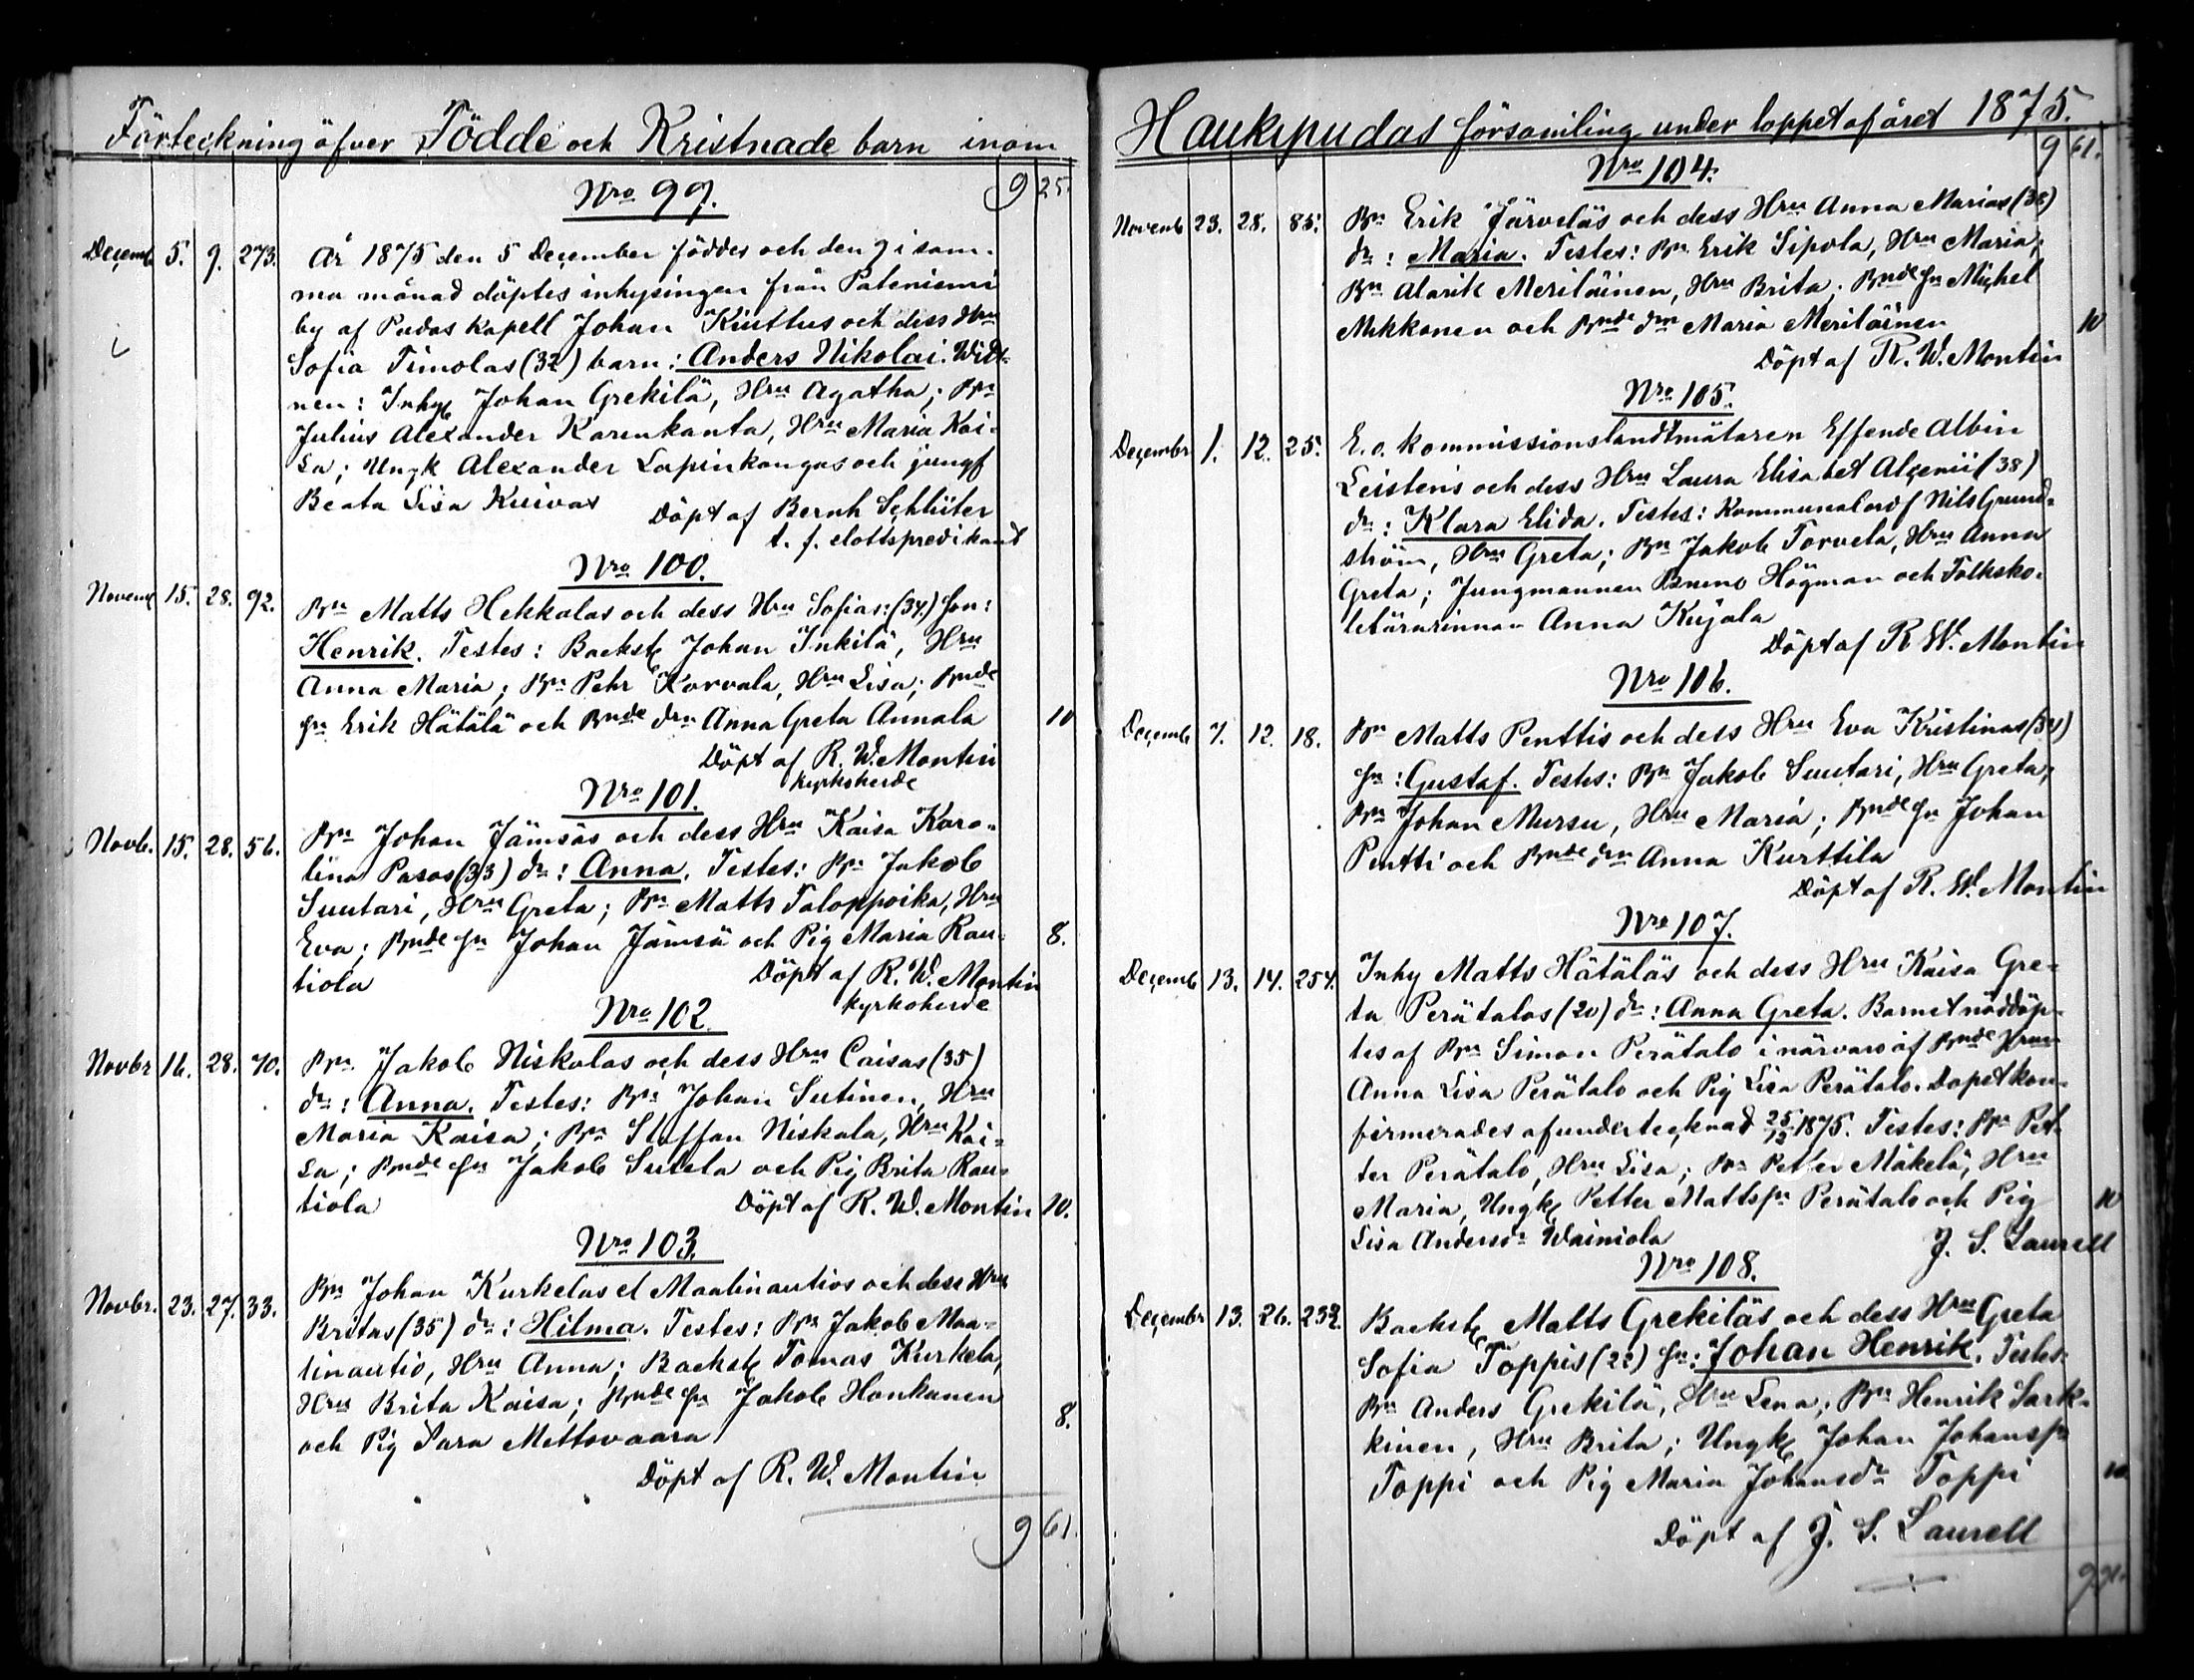 Förteckning öfver Födde och Kristnade barn inom
9 25.
Nro 99.
Decemb 5. 9. 273. År 1875 den 5 December föddes och den 9 i sam-
ma månad döptes inhysingen från Pateniemi
by af Pudas Kapell Johan Kiuttus och dess Hru
Sofia Timolas (32) barn: Anders Nikolai. Witt-
nen: Inhys Johan Grekilä, Hru Agatha; Bn
Julius Alexander Karenkanta, Hru Maria Kai-
sa; Ungk Alexander Lapinkangas och jungf
Beata Lisa Kuivas
Döpt af Bernh Schlüter
t. f. slottspredikant
Nro 100.
Novemb 15. 28. 92. Bn Matts Hekkalas och dess Hru Sofias: (34.) son:
Henrik. Testes: Backst Johan Inkilä, Hru
Anna Maria; Bn Pehr Korvala, Hru Lisa; Bnde
sn Erik Hätälä och Bnde drn Anna Greta Annala 10
Döpt af R. W. Montin
kyrkoherde
Nro 101.
Novb. 15. 28. 56. Bn Johan Jämsäs och dess Hru Kaisa Karo-
lina Pasos (33) dr: Anna. Testes: Bn Jakob
Suutari, Hru Greta; Bn Matts Taloppoika, Hru
Eva; Bnde sn Johan Jämsä och Pig Maria Rau- 8.
tiola Döpt af R. W. Montin
kyrkoherde
Nro 102.
Novbr 16. 28. 70. Bn Jakob Niskalas och dess Hru Caisas (35)
dr: Anna. Testes: Bn Johan Sutinen, Hru
Maria Kaisa; Bn Staffan Niskala, Hru Kai-
sa; Bnde sn Jakob Sutela och Pig Brita Rau-
tiola Döpt af R. W. Montin 10.
Nro 103.
Novbr. 23. 27. 33. Bn Johan Kurkelas el Maalinautios och dess Hru
Britas (35) dr: Hilma. Testes: Bn Jakob Maa-
linautio, Hru Anna; Backst Tomas Kurkela,
Hru Brita Kaisa; Bnde sn Jakob Honkanen 8.
och Pig Sara Mettovaara
Döpt af R. W. Montin
9 61.
Haukipudas församling under loppet af året 1875.
9 61.
Nro 104.
Novemb 23. 28. 85. Bn Erik Järveläs och dess Hru Anna Marias (38)
dr: Maria. Testes: Bn Erik Sipola, Hru Maria;
Bn Alarik Meriläinen, Hru Brita; Bnde sn Michel
Mikkonen och Bnde drn Maria Meriläinen 10
Döpt af R. W. Montin
Nro 105.
Decembr 1. 12. 25. E. o. kommissionslandtmätaren Effende Albin
Leistens och dess Hru Laura Elisabet Alcenii (38)
dr: Klara Elida. Testes: Kommunalordf Nils Grund-
ström, Hru Greta; Bn Jakob Torvela, Hru Anna
Greta; Jungmannen Bruno Högman och Folksko-
lelärarinnan Anna Kujala
Döpt af R W. Montin
Nro 106.
Decemb 7. 12. 18. Bn Matts Penttis och dess Hru Eva Kristinas (34)
sn: Gustaf. Testes: Bn Jakob Suutari, Hru Greta;
Bn Johan Mursu, Hru Maria; Bnde sn Johan
Pentti och Bnde drn Anna Kurttila
Döpt af R. W. Montin
Nro 107.
Decemb 13. 14. 254. Inhy Matts Hätäläs och dess Hru Kaisa Gre-
ta Perätalos (20) dr: Anna Greta. Barnet nöddöp-
tes af Bn Simon Perätalo i närvaro af Bnde Hrun
Anna Lisa Perätalo och Pig Lisa Perätalo. Dopet kon-
firmerades af undertecknad 25/12 1875. Testes: Bn Pet-
ter Perätalo, Hru Lisa; Bn Petter Mäkelä, Hru
Maria, Ungk Petter Mattssn Perätalo och Pig 10
Lisa Andersdr Wainiola J. S. Laurell
Nro 108.
Decembr 13. 26. 232. Backst Matts Grekiläs och dess Hru Greta
Sofia Toppis (22) sn: Johan Henrik. Testes:
Bn Anders Grekilä, Hru Lena; Bn Henrik Sark-
kinen, Hru Brita; Ungk Johan Johanssn
Toppi och Pig Maria Johansdr Toppi 10
Döpt af J. S. Laurell
9 91.